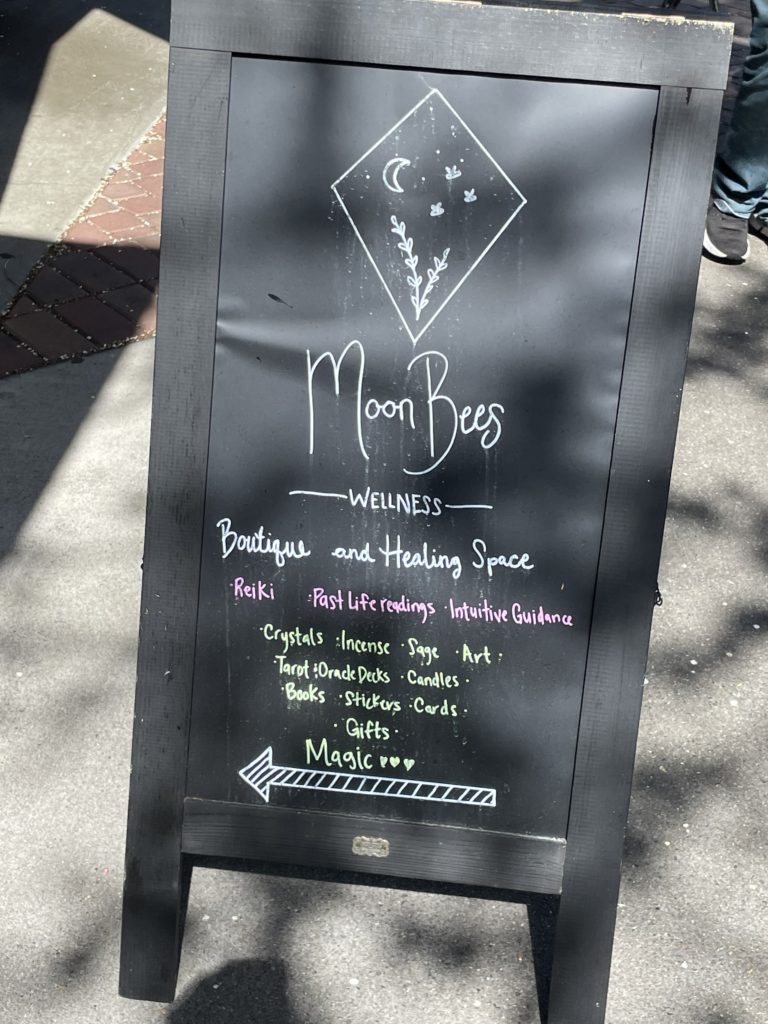 Moon Bees
WELLNESS
Boutique and Healing Space
·Reiki ·Past Life readings ·Intuitive Guidance
·Crystals ·Incense ·Sage ·Art·
·Tarot·Oracle Decks ·Candles·
·Books ·Stickers ·Cards·
·Gifts·
Magic